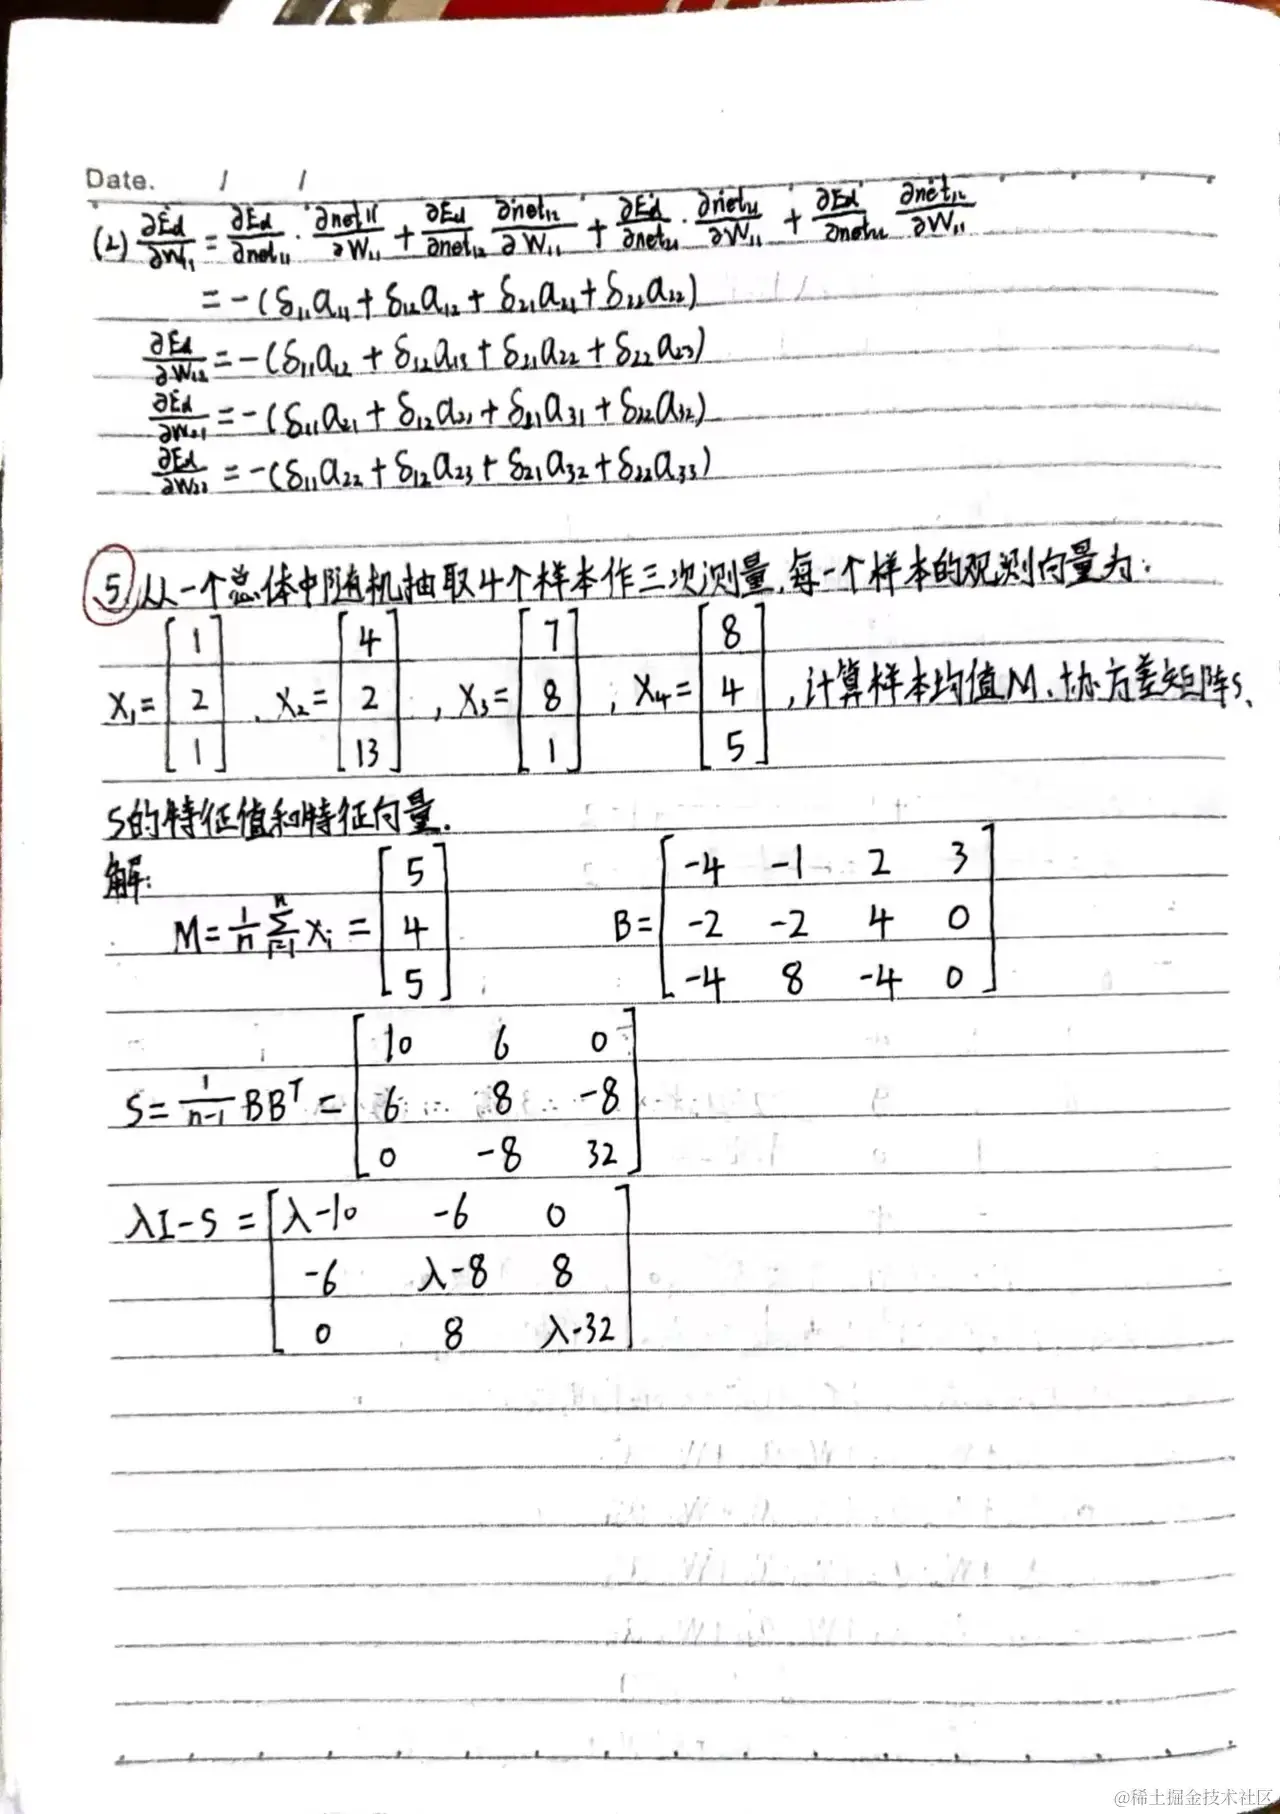 Date.    /    /
(2) ∂Ed/∂W₁₁ = ∂Ed/∂net₁₁ · ∂net₁₁/∂W₁₁ + ∂Ed/∂net₁₂ ∂net₁₂/∂W₁₁ + ∂Ed/∂net₂₁ · ∂net₂₁/∂W₁₁ + ∂Ed/∂net₂₂ ∂net₁₂/∂W₁₁
= -(δ₁₁a₁₁ + δ₁₂a₁₂ + δ₂₁a₂₁ + δ₂₂a₂₂)
∂Ed/∂W₁₂ = -(δ₁₁a₁₂ + δ₁₂a₁₃ + δ₂₁a₂₂ + δ₂₂a₂₃)
∂Ed/∂W₂₁ = -(δ₁₁a₂₁ + δ₁₂a₂₂ + δ₂₁a₃₁ + δ₂₂a₃₂)
∂Ed/∂W₂₂ = -(δ₁₁a₂₂ + δ₁₂a₂₃ + δ₂₁a₃₂ + δ₂₂a₃₃)
5. 从一个总体中随机抽取4个样本作三次测量,每一个样本的观测向量为:
X₁=[1 2 1], X₂=[4 2 13], X₃=[7 8 1], X₄=[8 4 5], 计算样本均值M、协方差矩阵S、
S的特征值和特征向量.
解:
M = 1/n Σⁿᵢ₌₁ Xᵢ = [5 4 5]    B = [-4 -1 2 3; -2 -2 4 0; -4 8 -4 0]
S = 1/(n-1) BBᵀ = [10 6 0; 6 8 -8; 0 -8 32]
λI-S = [λ-10 -6 0; -6 λ-8 8; 0 8 λ-32]
@稀土掘金技术社区